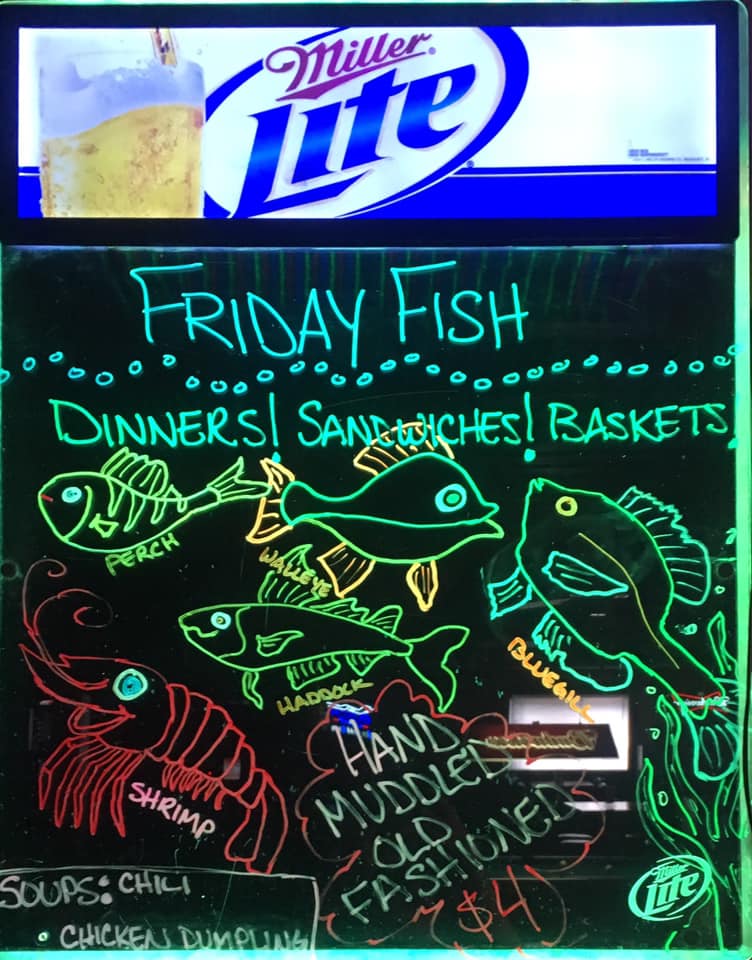 Miller
Lite
FRIDAY FISH
DINNERS! SANDWICHES! BASKETS
PERCH
WALLEYE
HADDOCK
BLUEGILL
SHRIMP
HAND
MUDDLED
OLD
FASHIONED
$4
SOUPS: CHILI
• CHICKEN DUMPLING
Miller
Lite